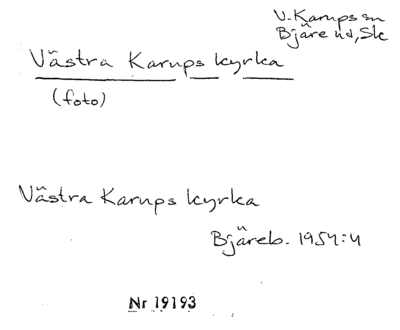 V. Karups sn
Bjäre hd, Sk
Västra Karups kyrka
(foto)
Västra Karups kyrka
Bjäreb. 1954:4
Nr 19193